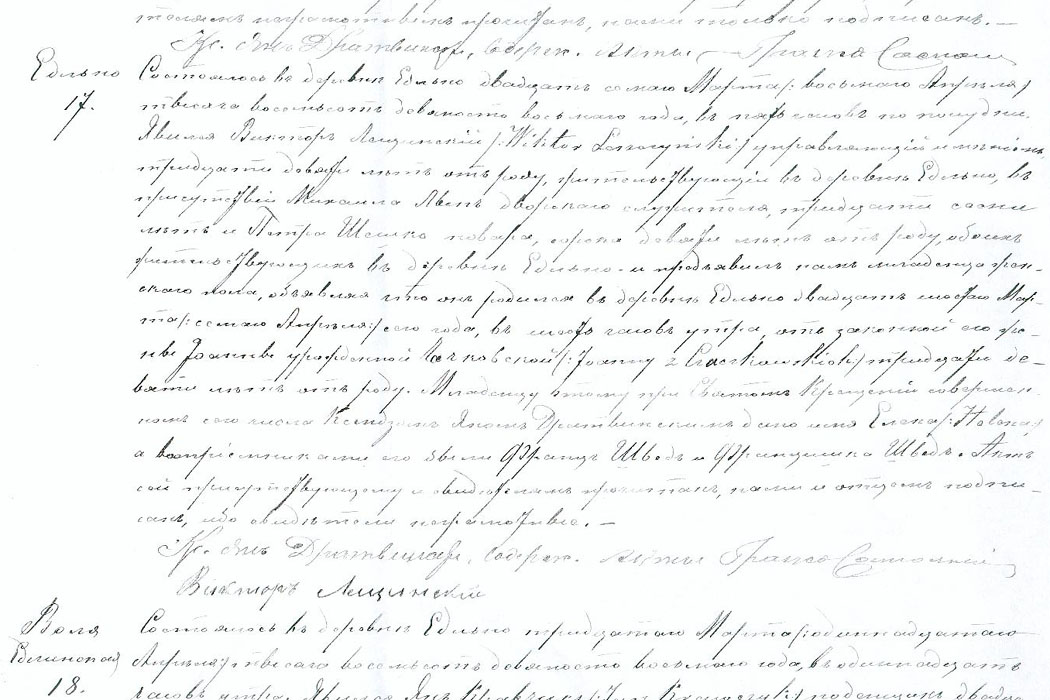 прочитанъ, нами только подписанъ. —
Кс. Янъ содерж. Акты
Едльно Состоялось въ деревни Едльно двадцать седьмаго Марта /: восьмаго Апрѣля /
17. тысяча восемьсотъ девяносто восьмаго года, въ часовъ по полудни.
Явился Викторъ Лещинскій /: Wiktor Leszczyński / управляющій имѣніемъ
тридцати девяти лѣтъ отъ роду, жительствующій въ деревни Едльно, въ
присутствіи Михаила дворскаго служителя, тридцати семи
лѣтъ и Петра повара, сорока девяти лѣтъ отъ роду, обоихъ
жительствующихъ въ деревни Едльно и предъявилъ намъ младенца жен-
скаго пола, объявляя что онъ родился въ деревни Едльно двадцать шестаго Мар-
та /: седьмаго Апрѣля :/ сего года, въ часовъ утра, отъ законной его же-
ны Іоанны урожденной Чачковской /: Joanny z Czaczkowskich / тридцати де-
вяти лѣтъ отъ роду. Младенцу этому при Святомъ Крещеніи совершен-
номъ сего числа Ксендзомъ Яномъ дано имя Елена /: Helena /
а воспріемниками его были Францъ Шведъ и Францишка Шведъ. Актъ
сей присутствующему и свидѣтелямъ прочитанъ, нами и отцемъ подпи-
санъ, ибо свидѣтели неграмотные. —
Кс. Янъ содерж. Акты
Викторъ Лещинскій
Воля Состоялось въ деревни Едльно тридцатаго Марта /: одиннадцатаго
Едлинская Апрѣля :/ тысяча восемьсотъ девяносто восьмаго года, въ одиннадцать
18. часовъ утра. Явился Янъ